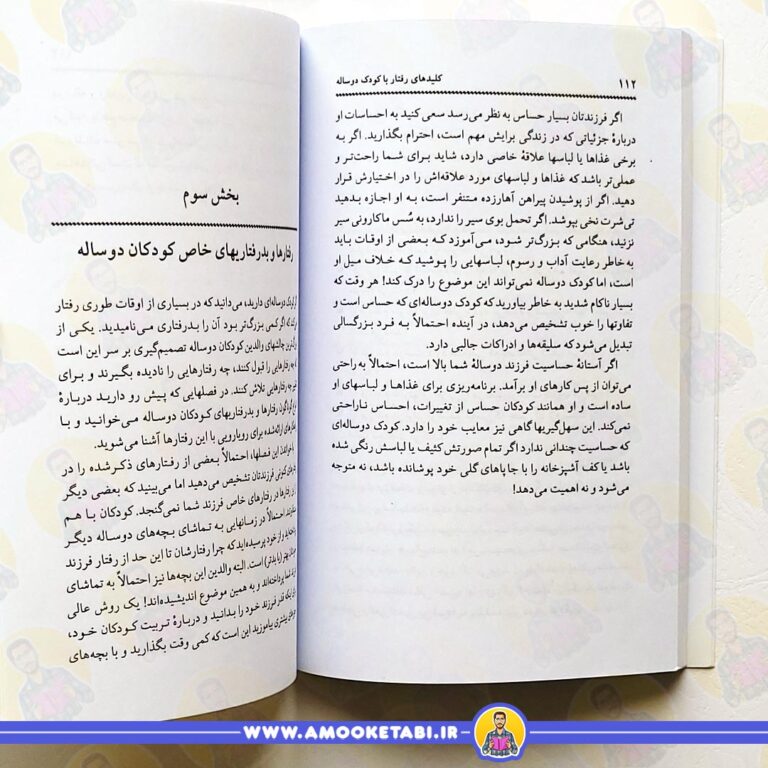 ۱۱۲
کلیدهای رفتار با کودک دوساله
اگر فرزندتان بسیار حساس به نظر می‌رسد سعی کنید به احساسات او
دربارهٔ جزئیاتی که در زندگی برایش مهم است، احترام بگذارید. اگر به
برخی غذاها یا لباسها علاقهٔ خاصی دارد، شاید برای شما راحت‌تر و
عملی‌تر باشد که غذاها و لباسهای مورد علاقه‌اش را در اختیارش قرار
دهید. اگر از پوشیدن پیراهن آهارزده متنفر است، به او اجازه بدهید
تی‌شرت نخی بپوشد. اگر تحمل بوی سیر را ندارد، به سُس ماکارونی سیر
نزنید، هنگامی که بزرگ‌تر شود، می‌آموزد که بعضی از اوقات باید
به خاطر رعایت آداب و رسوم، لباسهایی را پوشید که خلاف میل او
است، اما کودک دوساله نمی‌تواند این موضوع را درک کند! هر وقت که
بسیار ناکام شدید به خاطر بیاورید که کودک دوساله‌ای که حساس است و
تفاوتها را خوب تشخیص می‌دهد، در آینده احتمالاً به فرد بزرگسالی
تبدیل می‌شود که سلیقه‌ها و ادراکات جالبی دارد.
اگر آستانهٔ حساسیت فرزند دوسالهٔ شما بالا است، احتمالاً به‌راحتی
می‌توان از پس کارهای او برآمد. برنامه‌ریزی برای غذاها و لباسهای او
ساده است و او همانند کودکان حساس از تغییرات، احساس ناراحتی
نمی‌کند. این سهل‌گیریها گاهی نیز معایب خود را دارد. کودک دوساله‌ای
که حساسیت چندانی ندارد اگر تمام صورتش کثیف یا لباسش رنگی شده
باشد یا کف آشپزخانه را با جاپاهای گلی خود پوشانده باشد، نه متوجه
می‌شود و نه اهمیت می‌دهد!
بخش سوم
رفتارها و بدرفتاریهای خاص کودکان دوساله
کودک دوساله‌ای دارید، می‌دانید که در بسیاری از اوقات طوری رفتار
که اگر کمی بزرگ‌تر بود آن را بدرفتاری می‌نامیدید. یکی از
چالشهای والدین کودکان دوساله تصمیم‌گیری بر سر این است
چه رفتارهایی را قبول کنند، چه رفتارهایی را نادیده بگیرند و برای
چه رفتارهایی تلاش کنند. در فصلهایی که پیش رو دارید دربارهٔ
گوناگون رفتارها و بدرفتاریهای کودکان دوساله می‌خوانید و با
ارائه‌شده برای رویارویی با این رفتارها آشنا می‌شوید.
با خواندن این فصلها، احتمالاً بعضی از رفتارهای ذکرشده را در
کنونی فرزندتان تشخیص می‌دهید اما می‌بینید که بعضی دیگر
رفتارها در رفتارهای خاص فرزند شما نمی‌گنجد. کودکان با هم
احتمالاً در زمانهایی به تماشای بچه‌های دوساله دیگر
و از خود پرسیده‌اید که چرا رفتارشان تا این حد از رفتار فرزند
بهتر (یا بدتر) است. البته والدین این بچه‌ها نیز احتمالاً به تماشای
شما پرداخته‌اند و به همین موضوع اندیشیده‌اند! یک روش عالی
اینکه قدر فرزند خود را بدانید و دربارهٔ تربیت کودکان خود،
بیشتری بیاموزید این است که کمی وقت بگذارید و با بچه‌های
WWW.AMOOKETABI.IR